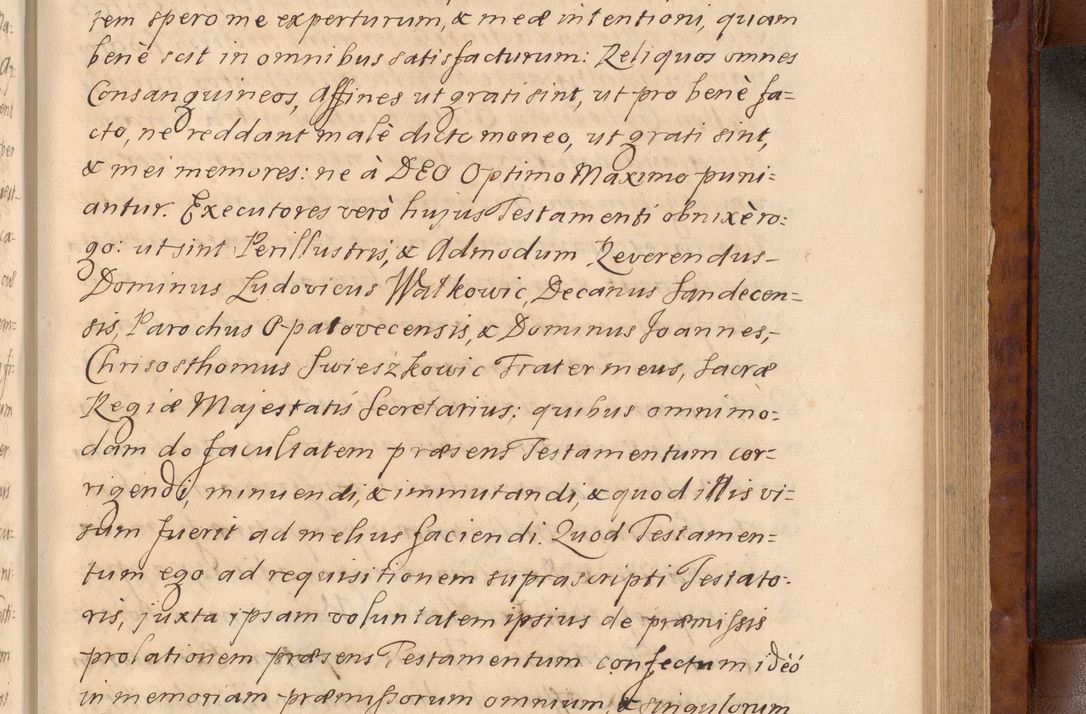 tem spero me experturum, & meæ intentioni, quam
benè scit in omnibus satisfacturum: Reliquos omnes
Consanguineos, Affines ut grati sint, ut pro benè fa=
cto, ne reddant malè dicto moneo, ut grati sint,
& mei memores: ne à DEO Optimo Maximo puni=
antur. Executores verò hujus Testamenti obnixè ro=
go: ut sint Perillustris, & Admodum Reverendus
Dominus Ludovicus Walkowic, Decanus Sandecen=
sis, Parochus Opatovecensis, & Dominus Joannes,
Chrisosthomus Swieszkowic Frater meus, Sacræ
Regiæ Majestatis Secretarius; quibus omnimo=
dam do facultatem præsens Testamentum cor=
rigendi, minuendi, & immutandi, & quod illis vi=
sum fuerit ad melius faciendi. Quod Testamen=
tum ego ad requisitionem suprascripti Testato=
ris, juxta ipsam voluntatem ipsius de præmissis
prolationem præsens Testamentum confectum ideó
in memoriam præmissorum omnium, & singulorum